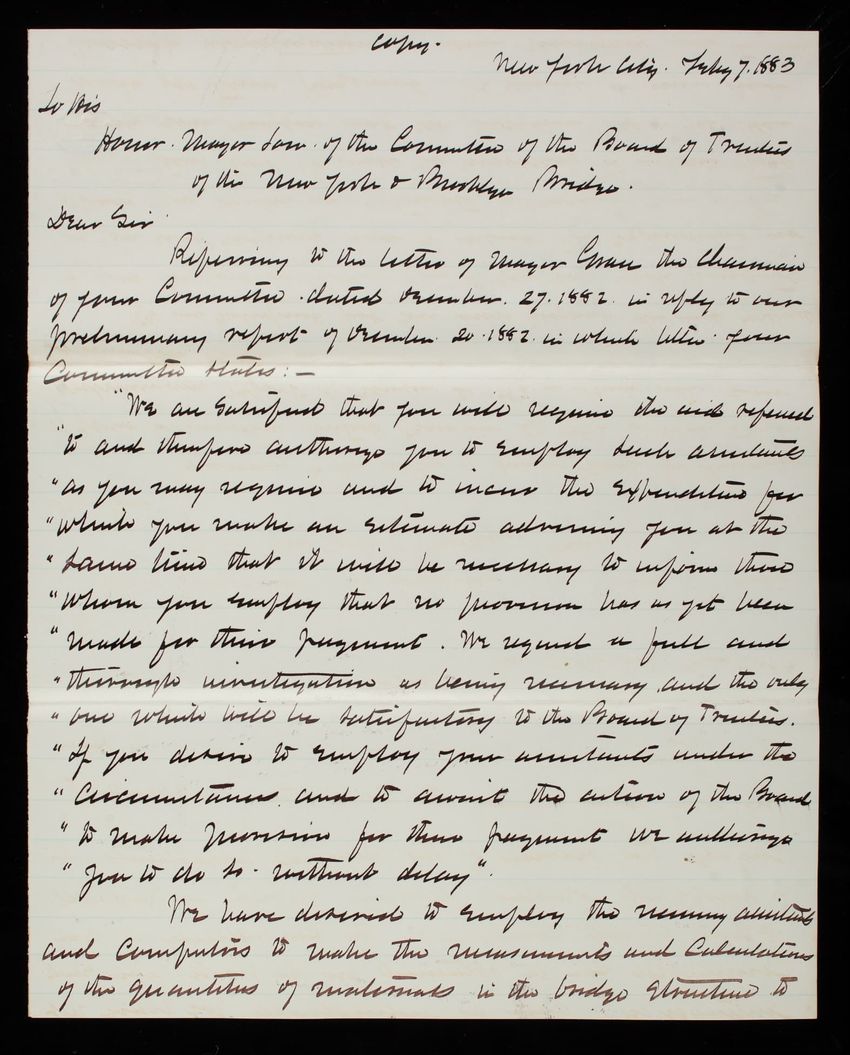 Copy.
New York City. Feby 7. 1883
To His
Honor. Mayor Low. of the Committee of the Board of Trustees
of the New York & Brooklyn Bridge.
Dear Sir
Referring to the letter of Mayor Grace the Chairman
of your Committee. dated December. 27. 1882. in reply to our
preliminary report of December 20. 1882. in which letter your
Committee states:—
"We are satisfied that you will require the aid referred
"to and therefore authorize you to employ such assistants
"as you may require and to incur the expenditure for
"which you make an estimate advising you at the
"same time that it will be necessary to inform those
"whom you employ that no provision has as yet been
"made for their payment. We regard a full and
"thorough investigation as being necessary, and the only
"one which will be satisfactory to the Board of Trustees.
"If you desire to employ your assistants under the
"circumstances, and to await the action of the Board
"to make provision for their payment we authorize
"you to do so. without delay".
We have desired to employ the necessary assistants
and computors to make the measurements and calculations
of the quantities of materials in the bridge structure to